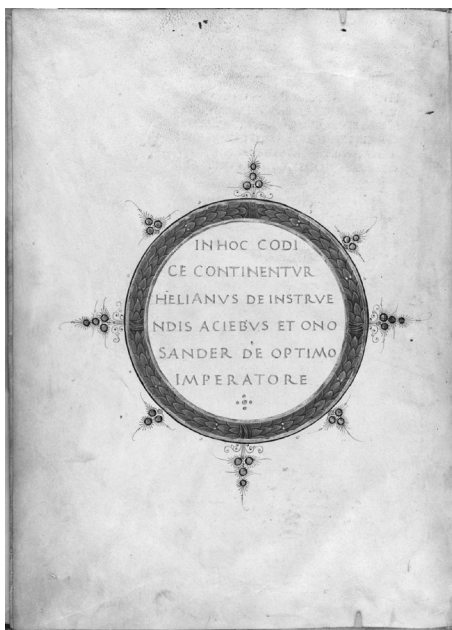 IN HOC CODI
CE CONTINENTVR
HELIANVS DE INSTRVE
NDIS ACIEBVS ET ONO
SANDER DE OPTIMO
IMPERATORE